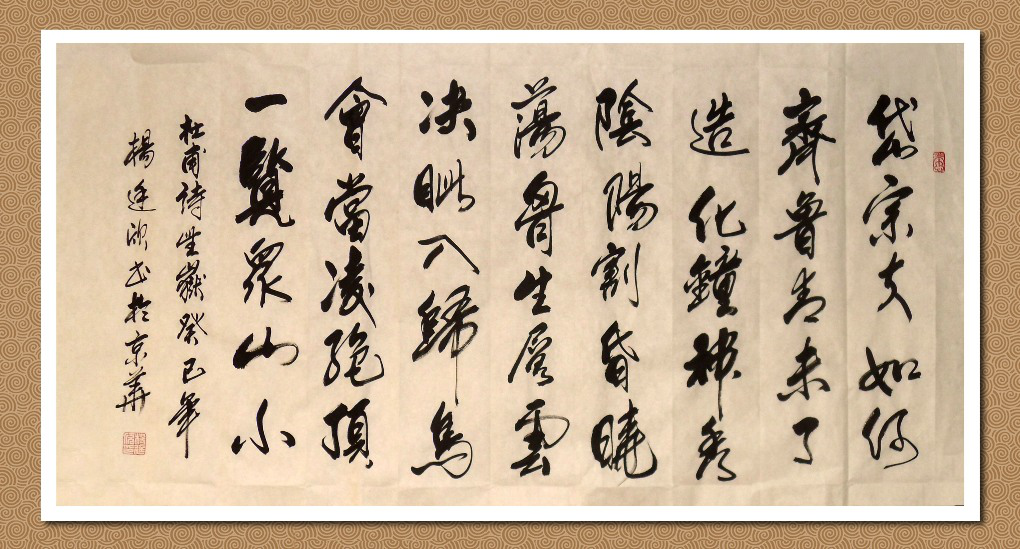 岱宗夫如何
齊魯青未了
造化鐘神秀
陰陽割昏曉
蕩胷生層雲
决眦入歸鳥
會當凌絕頂
一覽眾山小
杜甫詩望嶽癸巳年
楊书於京華